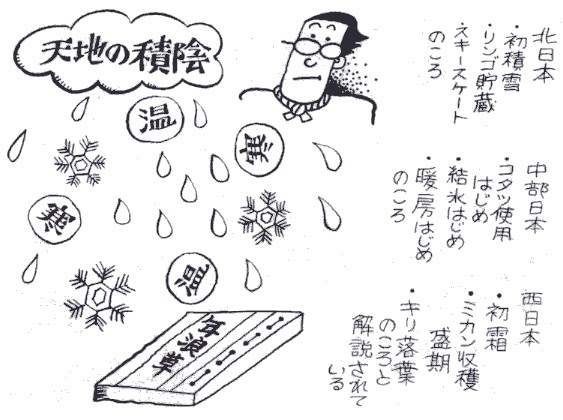 天地の積陰
温
寒
寒
温
年浪草
北日本
・初積雪
・リンゴ貯蔵
・スキースケート
のころ
中部日本
・コタツ使用
はじめ
・結氷はじめ
・暖房はじめ
のころ
西日本
・初霜
・ミカン収穫
盛期
・キリ落葉
のころと
解説されて
いる